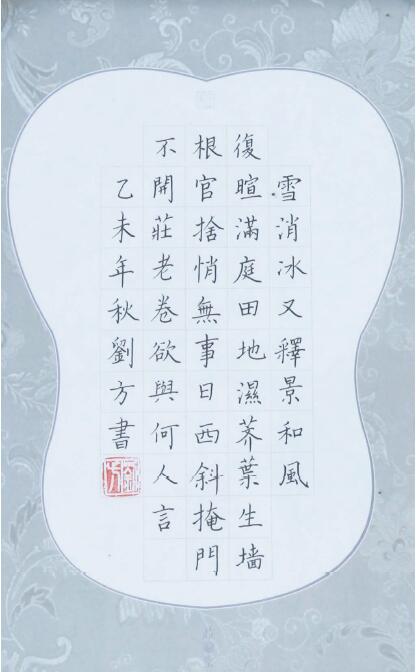 雪消冰又釋景和風
復暄滿庭田地濕荠葉生墙
根官捨悄無事日西斜掩門
不開莊老卷欲與何人言
乙未年秋劉方書